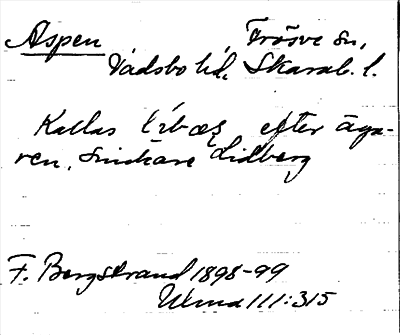 Aspen Frösve sn,
Vadsbo hd, Skarab. l.
Kallas efter äga-
ren, Snickare Lidberg
F. Bergstrand 1898-99
Ulma 111:315